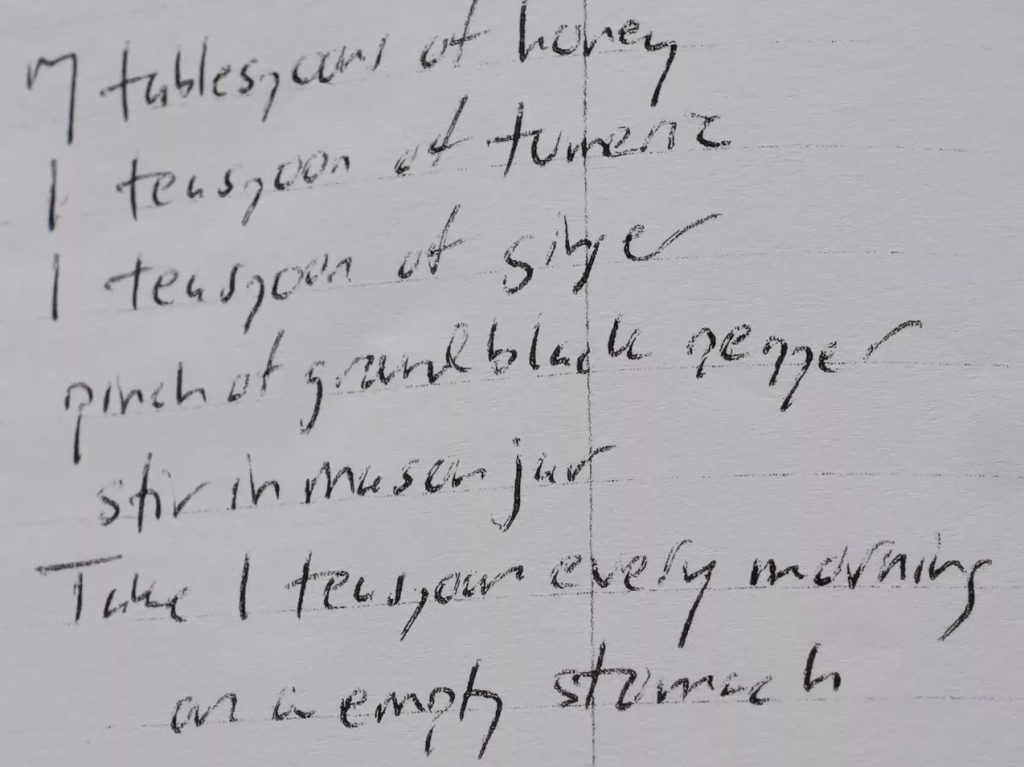 7 tablespoons of honey
1 teaspoon of tumeric
1 teaspoon of ginger
pinch of ground black pepper
stir in mason jar
Take 1 teaspoon every morning
on a empty stomach